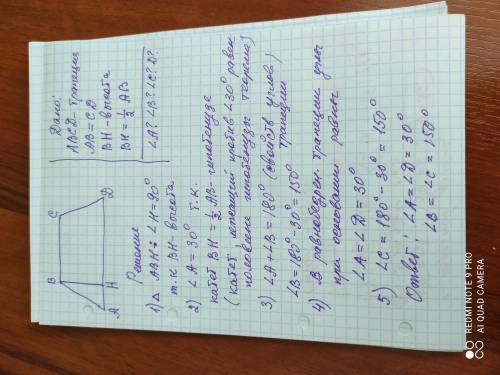 Дано:
ABCD - трапеция
AB = CD
BH - высота
BH = 1/2 AB
∠A? ∠B? ∠C? ∠D?
B C
A H D
Решение
1) △ ABH: ∠H = 90°
т.к. BH - высота
2) ∠A = 30° т.к.
катет BH = 1/2 AB - гипотенузе
(катет, лежащий против ∠30° равен
половине гипотенузы теорема)
3) ∠A + ∠B = 180° (свойств углов
трапеции)
∠B = 180° - 30° = 150°
4) В равнобедрен. трапеции углы
при основании равны
∠A = ∠D = 30°
5) ∠C = 180° - 30° = 150°
Ответ: ∠A = ∠D = 30°
∠B = ∠C = 150°
REDMI NOTE 9 PRO
AI QUAD CAMERA